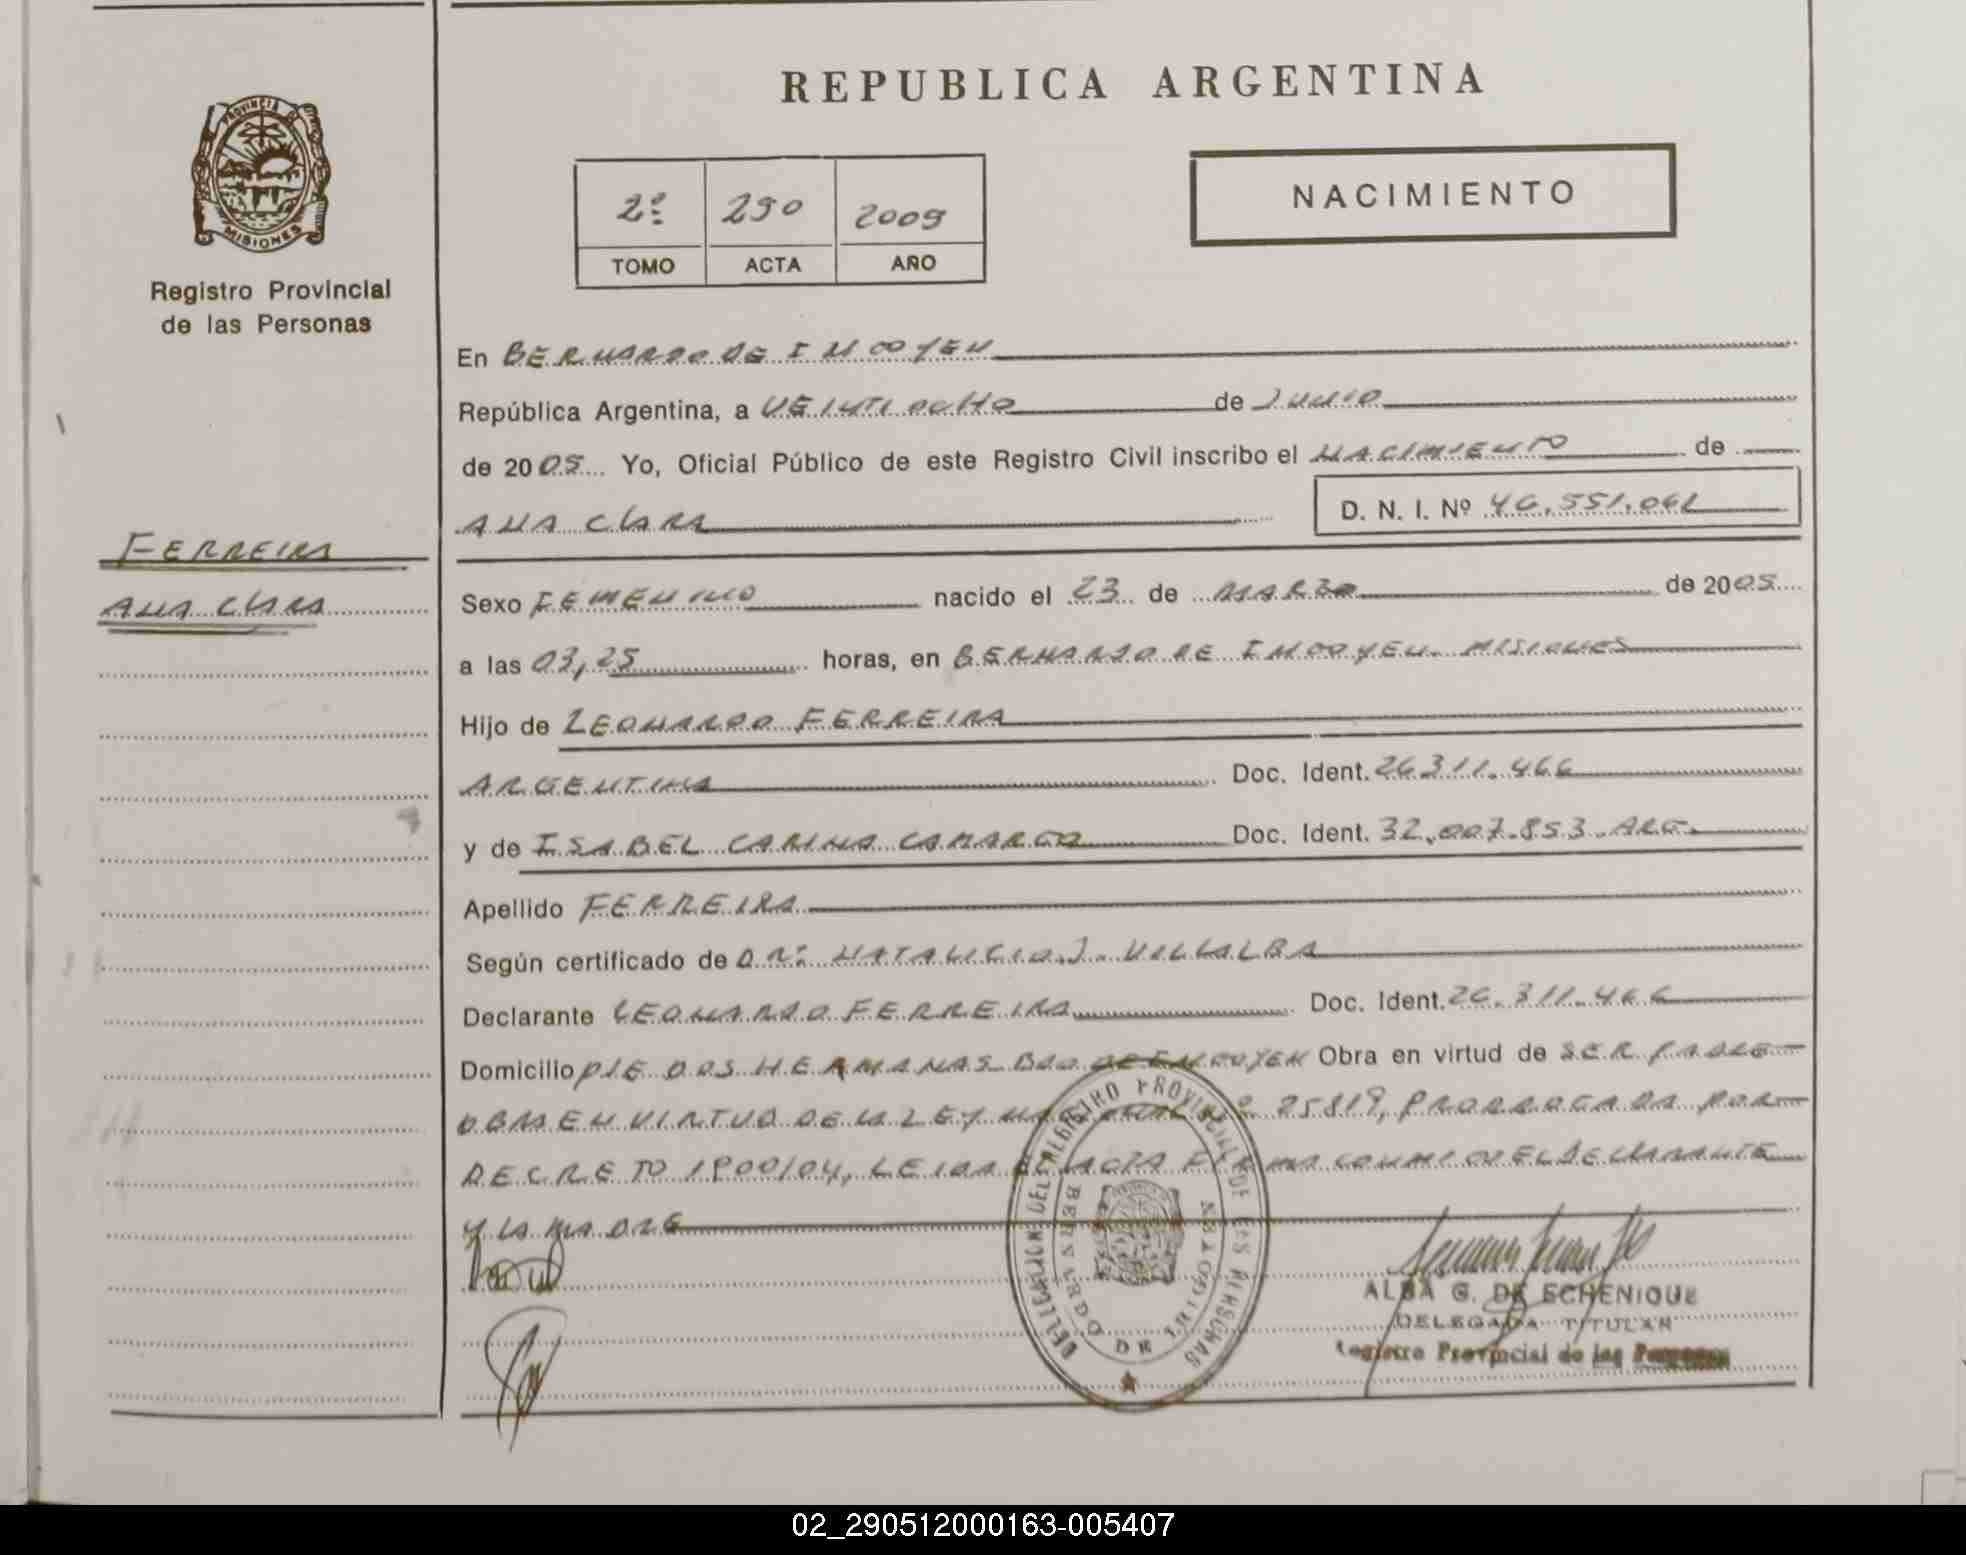 REPUBLICA ARGENTINA
PROVINCIA
MISIONES
Registro Provincial
de las Personas
2º 290 2009
TOMO ACTA AÑO
NACIMIENTO
En BERNARDO DE IRIGOYEN
República Argentina, a VEINTIOCHO de JUNIO
de 2005 Yo, Oficial Público de este Registro Civil inscribo el NACIMIENTO de
ANA CLARA D. N. I. Nº 46.551.062
FERREIRA
ANA CLARA
Sexo FEMENINO nacido el 23 de MARZO de 2005
a las 03,25 horas, en BERNARDO DE IRIGOYEN. MISIONES
Hijo de LEONARDO FERREIRA
ARGENTINA Doc. Ident. 26.311.466
y de ISABEL CARINA CAMARGO Doc. Ident. 32.007.853.ARG.
Apellido FERREIRA
Según certificado de DR: NATALICIO J. VILLALBA
Declarante LEONARDO FERREIRA Doc. Ident. 26.311.466
Domicilio PJE DOS HERMANAS BDO DE IRIGOYEN Obra en virtud de SER PADRE
OBRA EN VIRTUD DE LA LEY NACIONAL Nº 25819, PRORROGADA POR
DECRETO 1900/04, LEIDA EL ACTA FIRMA CONMIGO EL DECLARANTE
Y LA MADRE
DELEGACION DEL REGISTRO PROVINCIAL DE LAS PERSONAS
BERNARDO DE IRIGOYEN
ALBA G. DE ECHENIQUE
DELEGADA TITULAR
Registro Provincial de las Personas
02_290512000163-005407